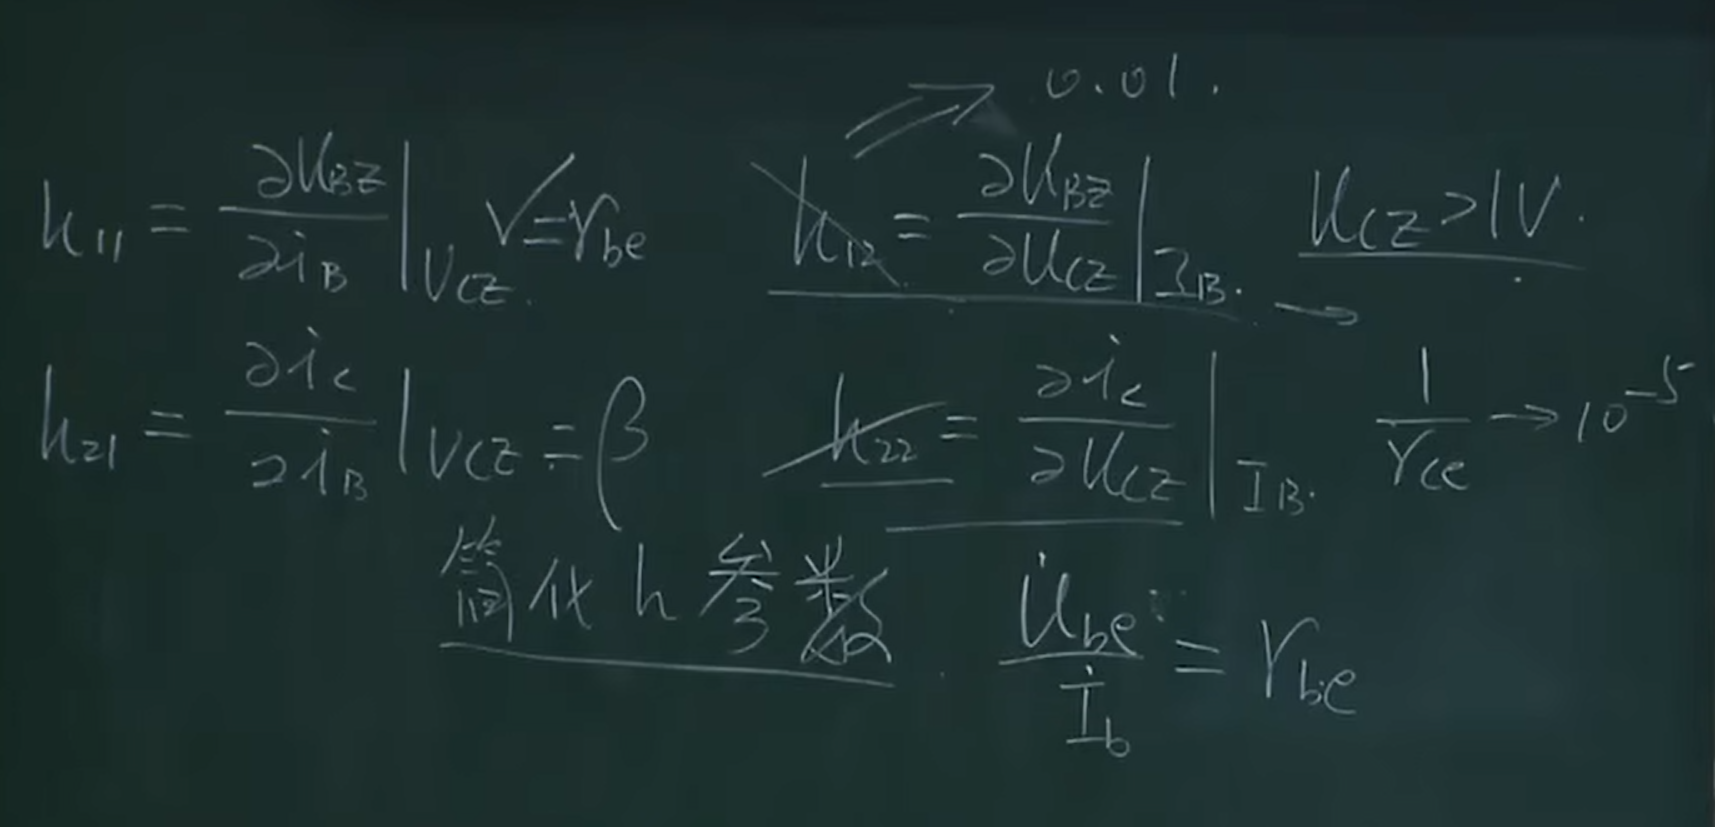 0.01.
h₁₁ = ∂u_BE/∂i_B |U_CE ✓ = r_be h₁₂ = ∂u_BE/∂u_CE |I_B. u_CE >1V.
h₂₁ = ∂i_c/∂i_B |U_CE = β h₂₂ = ∂i_c/∂u_CE |I_B. 1/r_ce → 10⁻⁵
简化h参数 U̇_be/İ_b = r_be